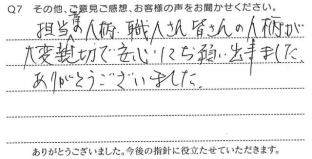 Q7 その他、ご意見ご感想、お客様の声をお聞かせください。
担当者の人柄、職人さん皆さんの人柄が
大変親切で安心にお願い出来ました。
ありがとうございました。
ありがとうございました。今後の指針に役立たせていただきます。